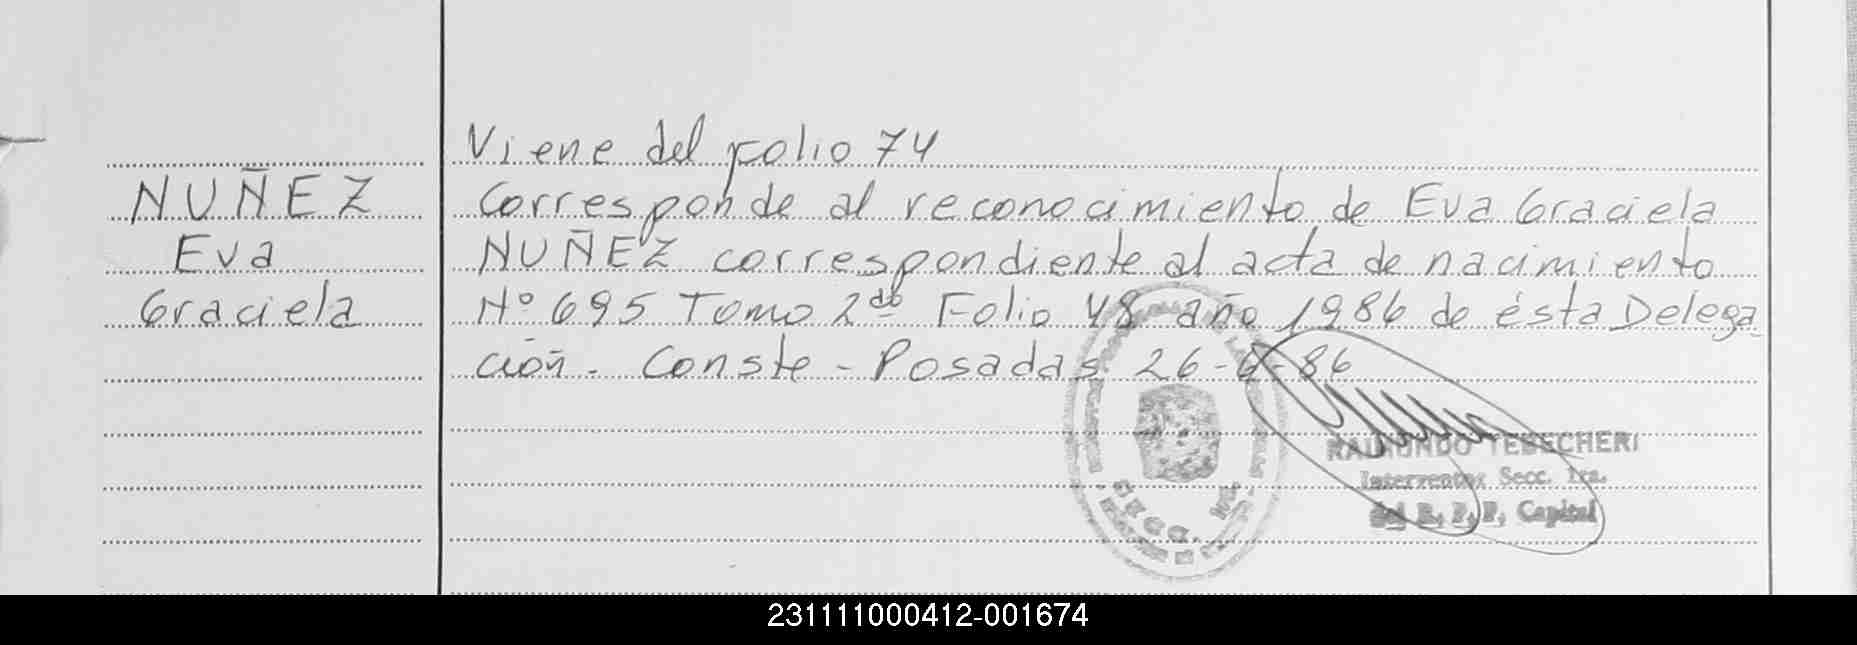 Viene del folio 74
NUÑEZ
Eva
Graciela
Corresponde al reconocimiento de Eva Graciela
NUÑEZ correspondiente al acta de nacimiento
Nº 695 Tomo 2do Folio 48 año 1986 de ésta Delega
ción. Conste - Posadas 26-6-86
RAIMUNDO TEBECHERI
Interventor Secc. 1ra.
del R. P. P. Capital
SECC.
231111000412-001674